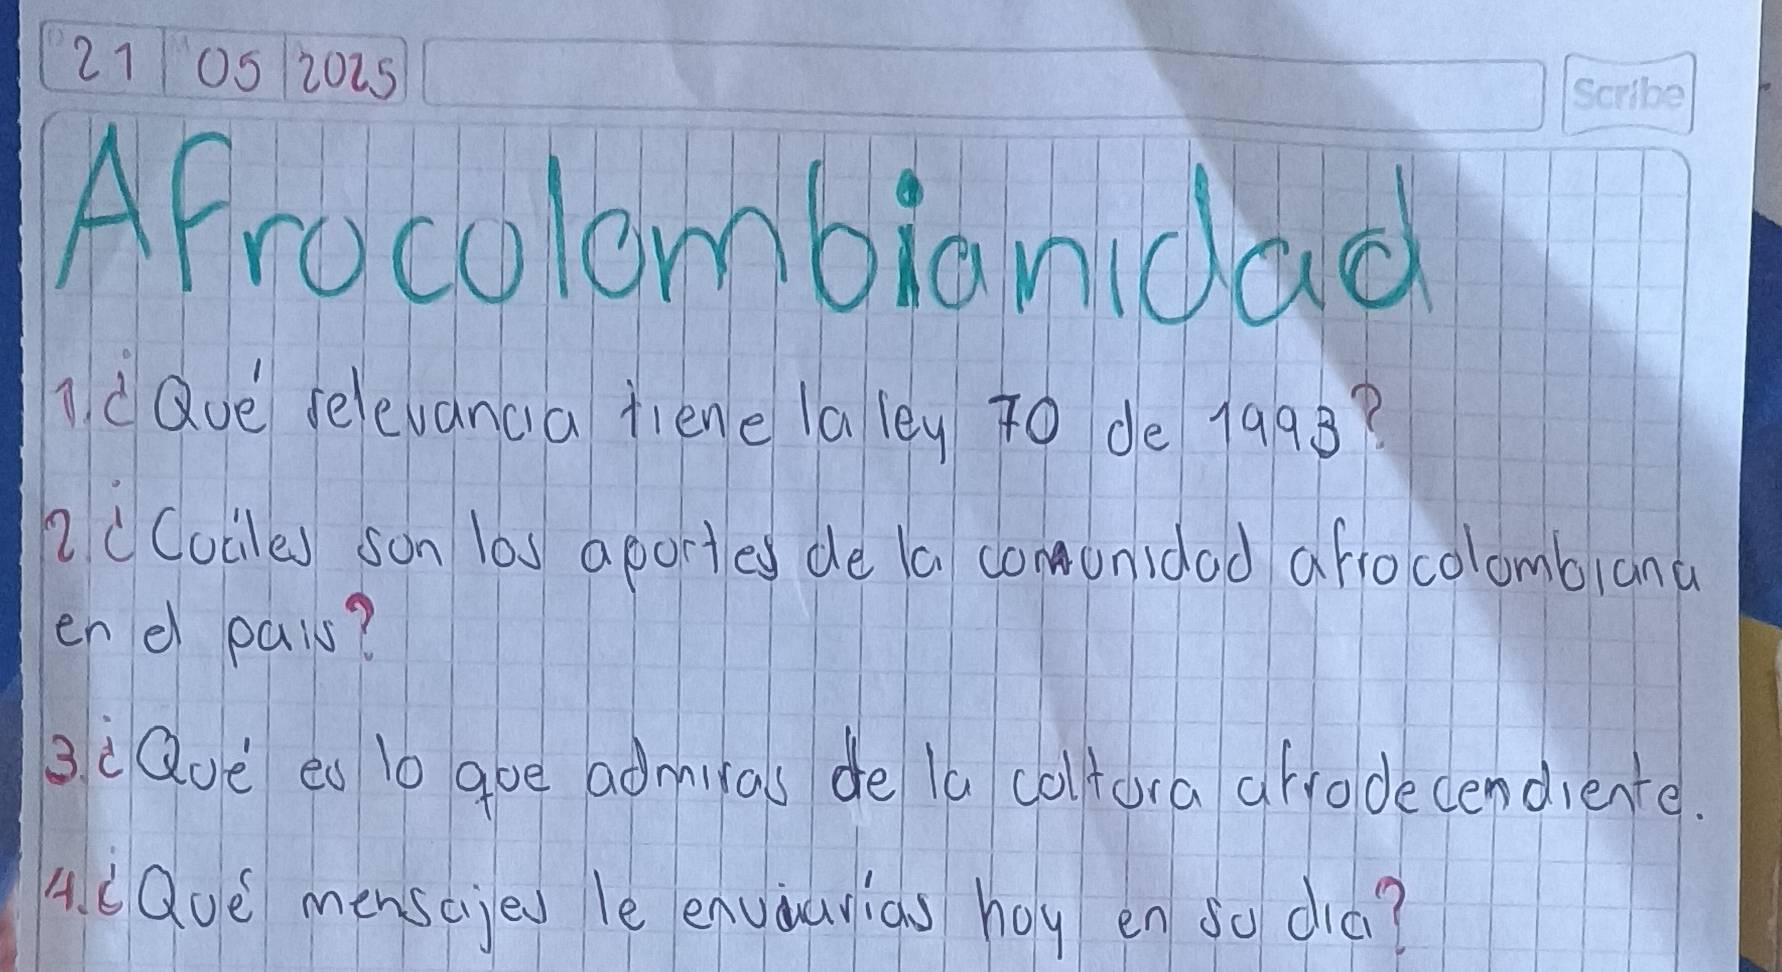 21 05 2025
Scribe
Afrocolombianidad
1. ¿Qué relevancia tiene la ley 70 de 1993?
2. ¿Cuáles son los aportes de la comunidad afrocolombiana
en el pais?
3. ¿Qué es lo que admiras de la cultura afrodecendiente.
4. ¿Qué mensajes le enviarías hoy en su dia?